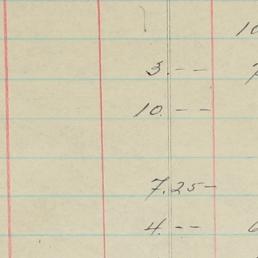 10
3. - -
10. - -
7.25 -
4. - -